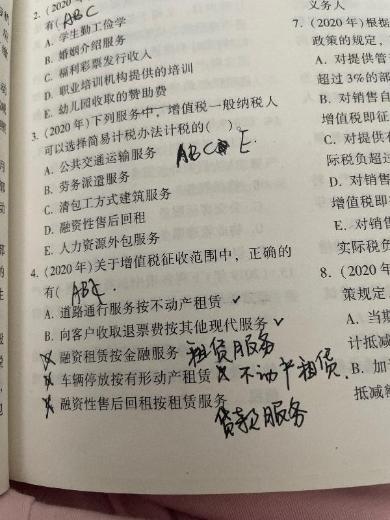 2. (2020年
有( ABC
A. 学生勤工俭学
B. 婚姻介绍服务
C. 福利彩票发行收入
D. 职业培训机构提供的培训
E. 幼儿园收取的赞助费
3. (2020年)下列服务中，增值税一般纳税人
可以选择简易计税办法计税的( )。
A. 公共交通运输服务 ABC E.
B. 劳务派遣服务
C. 清包工方式建筑服务
D. 融资性售后回租
E. 人力资源外包服务
4. (2020年)关于增值税征收范围中，正确的
有(
A. 道路通行服务按不动产租赁 ✓
B. 向客户收取退票费按其他现代服务 ✓
融资租赁按金融服务 租赁服务
车辆停放按有形动产租赁 × 不动产租赁.
融资性售后回租按租赁服务
贷款服务
义务人
7. (2020年)根据
政策的规定，
A. 对提供管
超过3%的部
B. 对销售自
增值税即征
C. 对提供有
际税负超过
D. 对销售
增值税即
E. 对销售
实际税负
8. (2020年
策规定，
A. 当期
计抵减
B. 加
抵减额